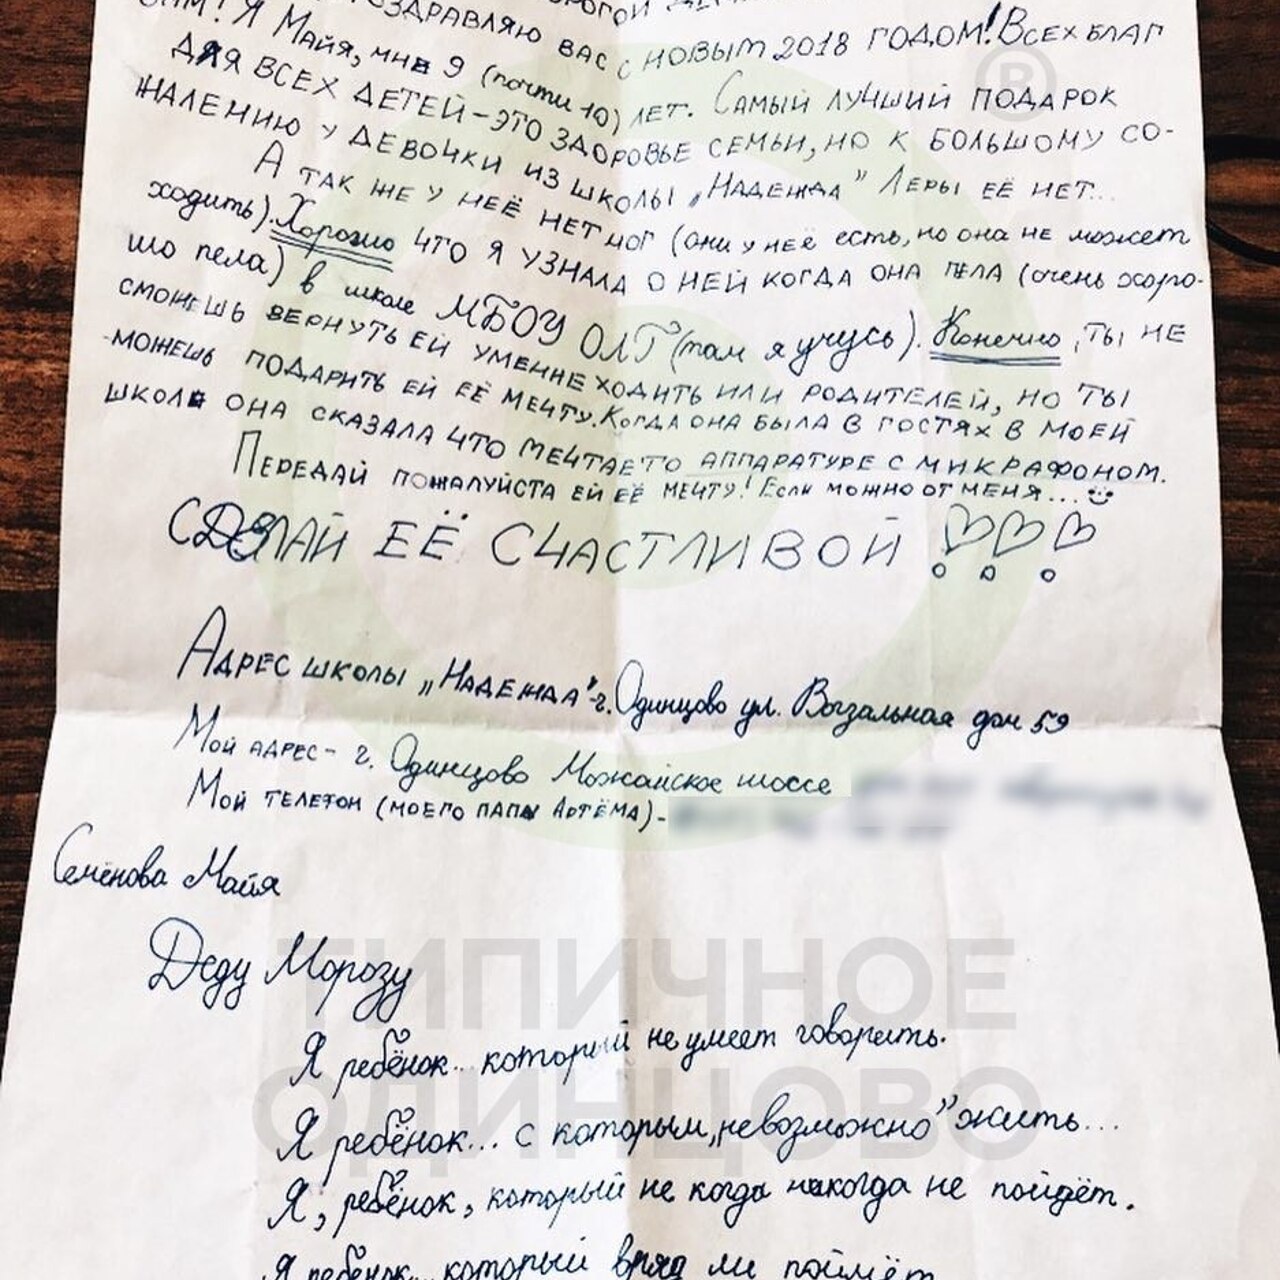 ПОЗДРАВЛЯЮ ВАС С НОВЫМ 2018 ГОДОМ! ВСЕХ БЛАГ
ВАМ! Я МАЙЯ, МНЕ 9 (почти 10) ЛЕТ. САМЫЙ ЛУЧШИЙ ПОДАРОК
ДЛЯ ВСЕХ ДЕТЕЙ-ЭТО ЗДОРОВЬЕ СЕМЬИ, НО К БОЛЬШОМУ СО-
ЖАЛЕНИЮ У ДЕВОЧКИ ИЗ ШКОЛЫ „НАДЕЖДА” ЛЕРЫ ЕЁ НЕТ...
А ТАК ЖЕ У НЕЁ НЕТ НОГ (они у неё есть, но она не может
ходить). Хорошо ЧТО Я УЗНАЛА О НЕЙ КОГДА ОНА ПЕЛА (очень хоро-
шо пела) в школе МБОУ ОЛГ (там я учусь). Конечно, ТЫ НЕ
СМОЖЕШЬ ВЕРНУТЬ ЕЙ УМЕНИЕ ХОДИТЬ ИЛИ РОДИТЕЛЕЙ, НО ТЫ
МОЖЕШЬ ПОДАРИТЬ ЕЙ ЕЁ МЕЧТУ. КОГДА ОНА БЫЛА В ГОСТЯХ В МОЕЙ
ШКОЛЕ ОНА СКАЗАЛА ЧТО МЕЧТАЕТ О АППАРАТУРЕ С МИКРАФОНОМ.
ПЕРЕДАЙ ПОЖАЛУЙСТА ЕЙ ЕЁ МЕЧТУ! ЕСЛИ МОЖНО ОТ МЕНЯ...
СДЕЛАЙ ЕЁ СЧАСТЛИВОЙ !!!
АДРЕС ШКОЛЫ „НАДЕЖДА”-г. Одинцово ул. Вокзальная дом 59
МОЙ АДРЕС- г. Одинцово Можайское шоссе
МОЙ ТЕЛЕФОН (МОЕГО ПАПЫ АРТЁМА)-
Семёнова Майя
Деду Морозу
ТИПИЧНОЕ
Я ребёнок... который не умеет говорить.
ОДИНЦОВО
Я ребёнок... с которым „невозможно” жить...
Я, ребёнок, который не когда никогда не пойдёт.
Я ребёнок... который вряд ли поймёт
®